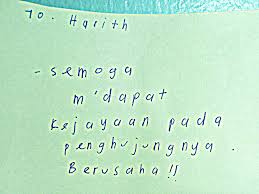 To. Harith
- semoga
m'dapat
kejayaan pada
penghujungnya.
Berusaha!!